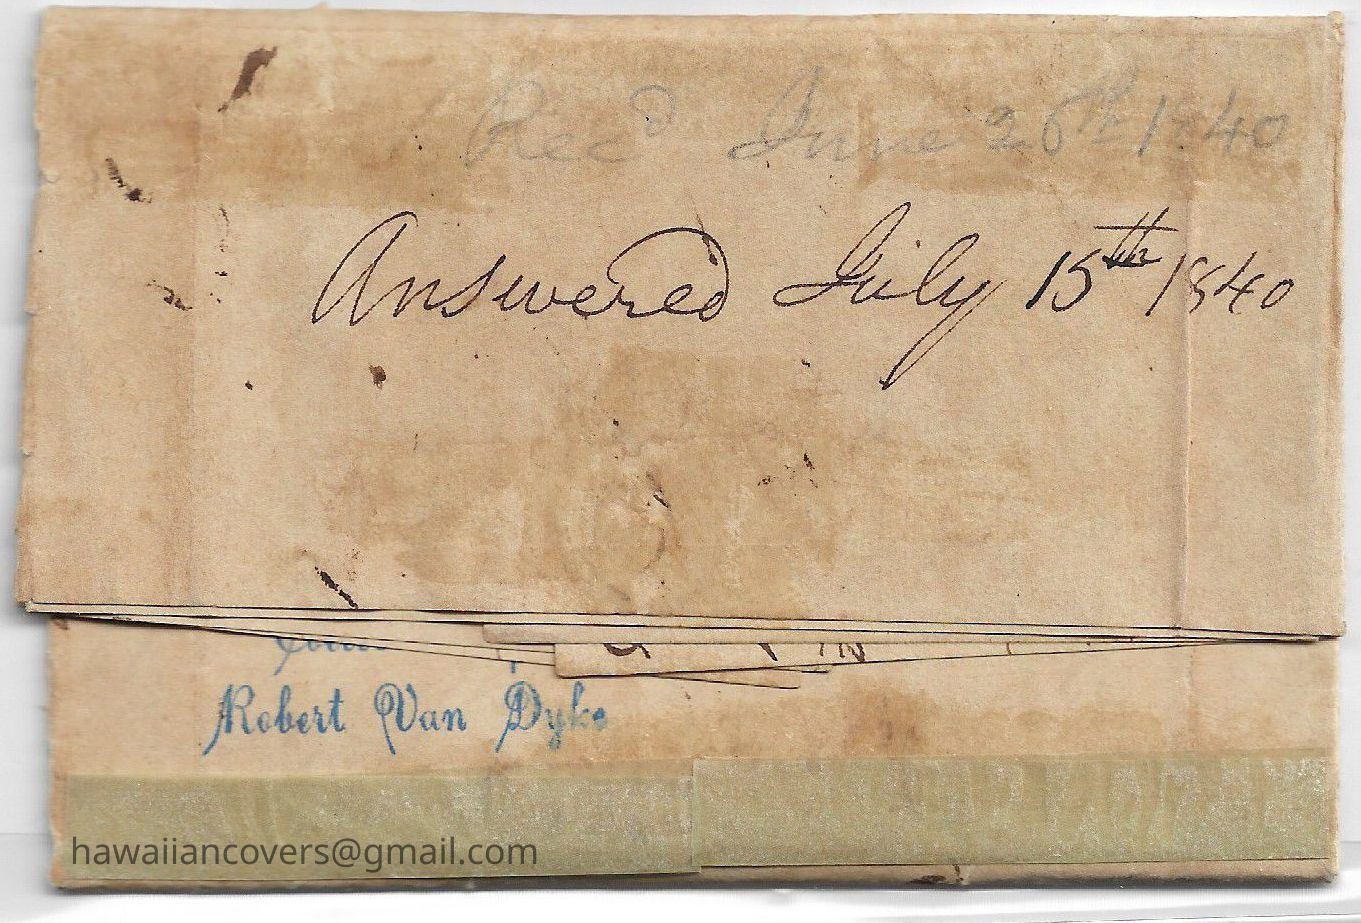 Recd June 26th 1840
Answered July 15th 1840
Robert Van Dyke
hawaiiancovers@gmail.com